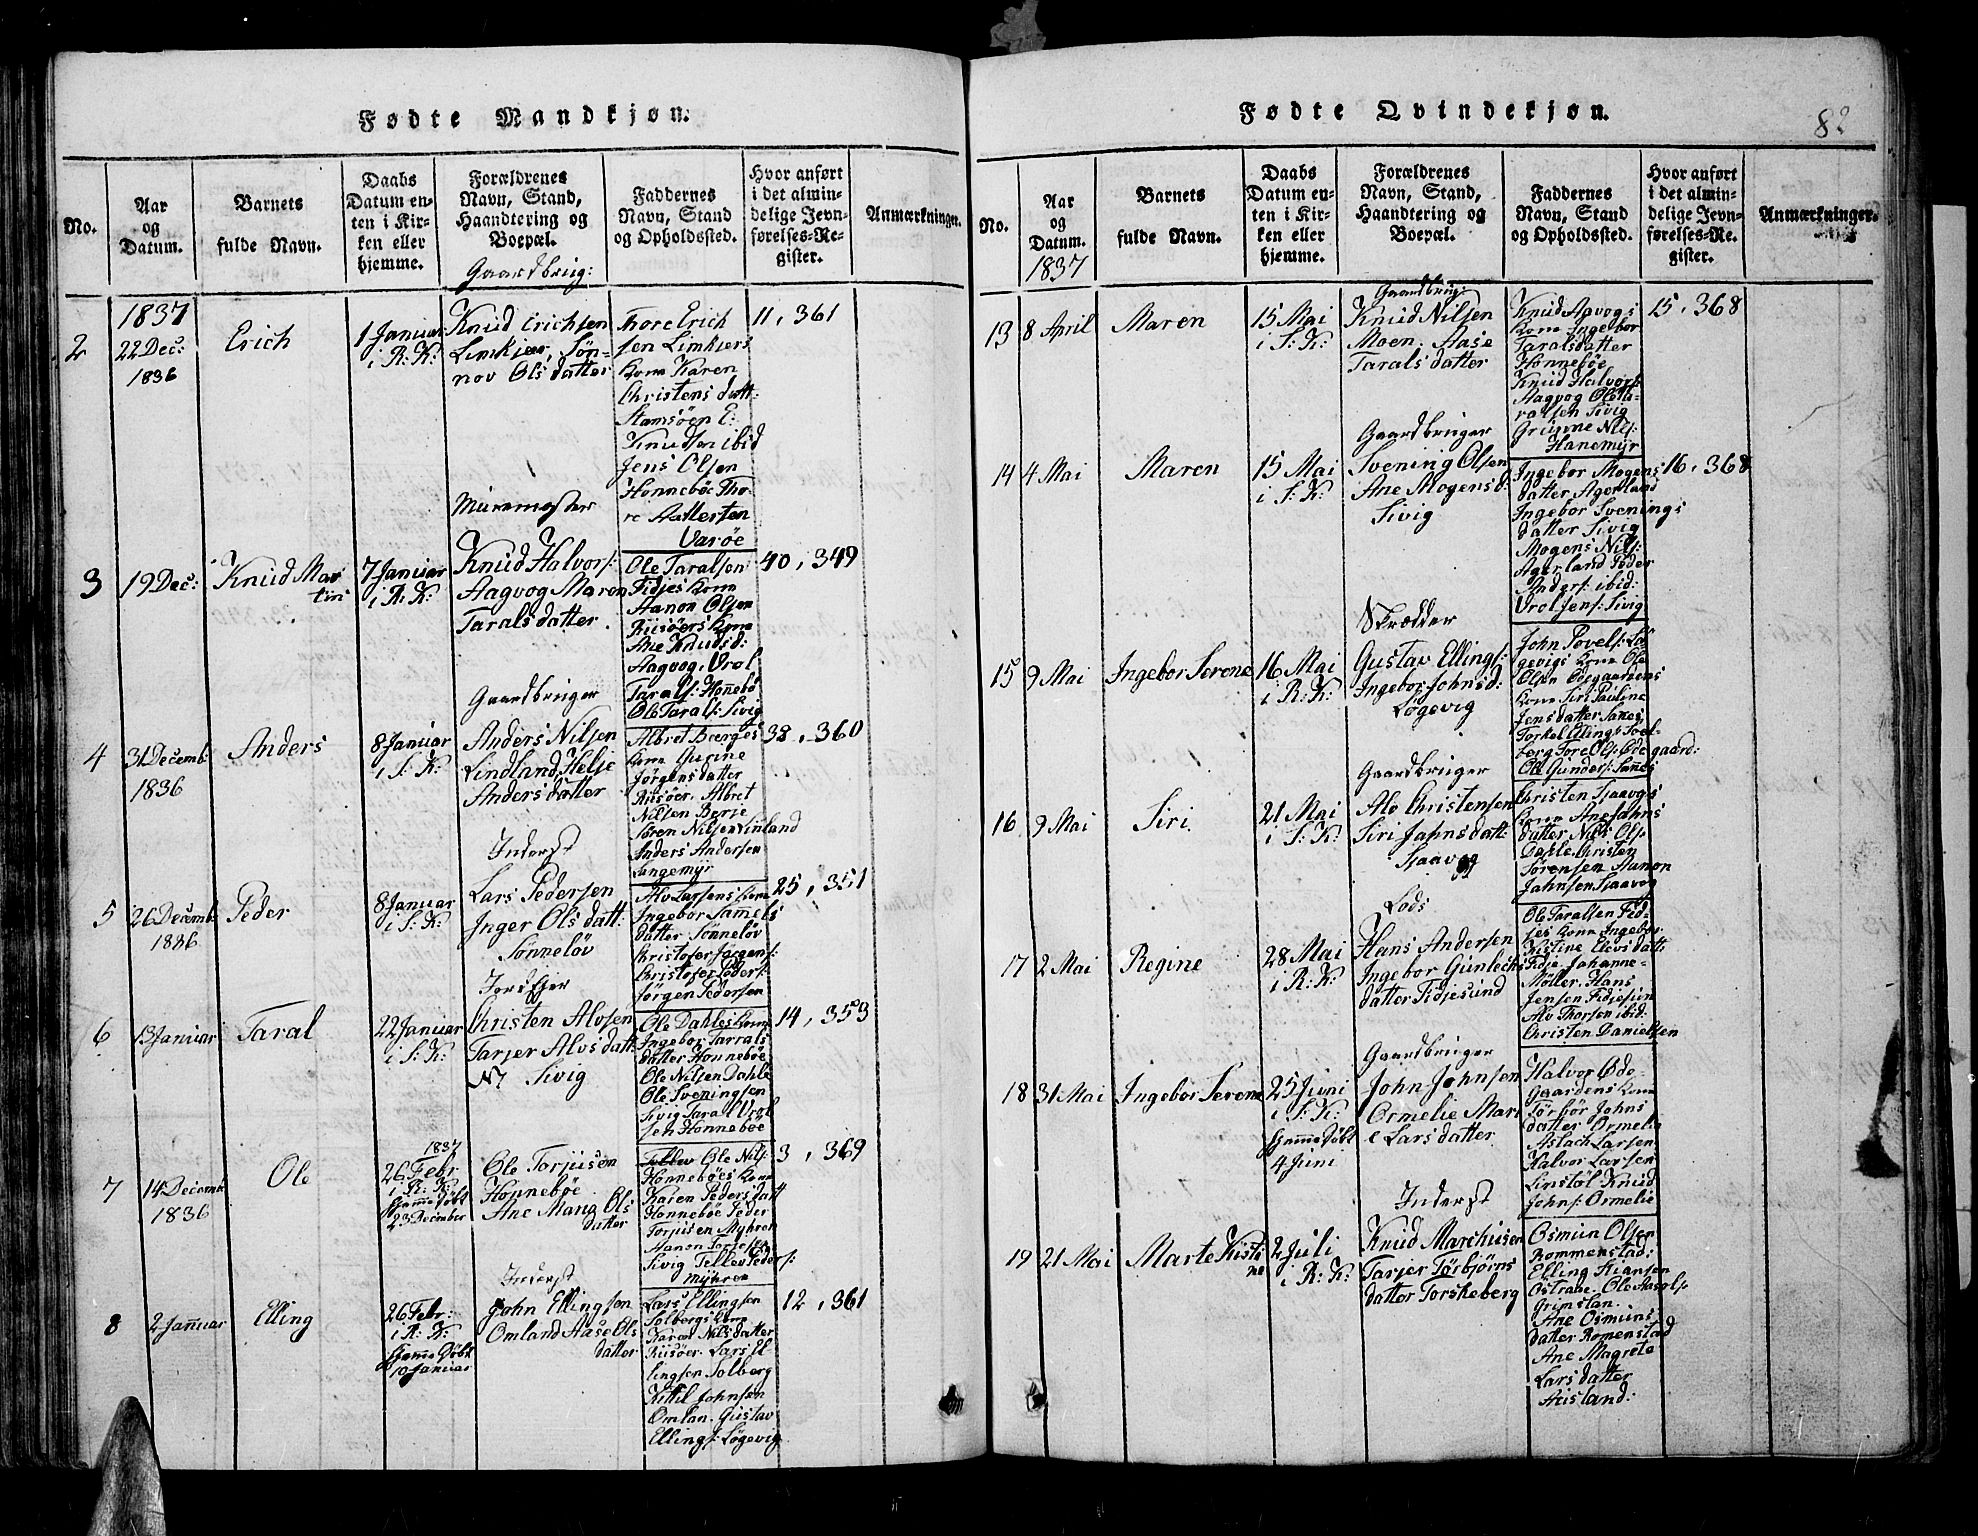 Fødte Mandkjøn.
No.
Aar
og
Datum.
Barnets
fulde Navn.
Daabs
Datum en-
ten i Kir-
ken eller
hjemme.
Forældrenes
Navn, Stand,
Haandtering og
Boepæl.
Faddernes
Navn, Stand
og Opholdssted.
Hvor anført
i det almin-
delige Jevn-
førelses-Re-
gister.
Anmærkninger.
2
1837
22 Dec:
1836
Erich
1 Januar
i R: K:
Gaardbrug:
Knud Erichsen
Limkjær, Søn-
nov Olsdatter
Thore Erich
sen Limkjers
Kone Karen
Christensdatt:
Stamsöen E:
Knudsen ibid
Jens Olsen
Honneböe Tho-
re Aattesten
Varöe
11, 361
3
19 Dec:
Knud Mar
tin
7 Januar
i R: K:
Muurmester
Knud Halvors:
Aagvog Maren
Taralsdatter.
Ole Taralsen
Fidjes Kone
Aanon Olsen
Riisöers Kone
Ane Knudsd:
Aagvog, Vrol
Tarals: Honnebö
Ole Tarals: Sivig
40, 349
4
31 Decemb:
1836
Anders
8 Januar
i S: K:
Gaardbruger
Anders Nilsen
Lindland, Helje
Andersdatter
Albret Berges
Kone Gurine
Jörgensdatter
Riisöer, Albret
Nilsen Berje
Sören Nilsen Linland
Anders Andersen
Langemyr
38, 360
5
26 Decemb:
1836
Peder
8 Januar
i S: K:
Inderst
Lars Pedersen
Inger Olsdatt:
Sönnelöv
Alv Larsens Kone
Ingebor Samuels
datter Sönnelöv
Christofer Jörgens:
Christofer Peders:
Jörgen Pedersen
25, 351
6
13 Januar
Taral
22 Januar
i S: K:
Jordejer
Christen Alvsen
Tarjer Alvsdatt:
Sivig
Ole Dahles Kone
Ingebor Tarrals
datter Honneböe
Ole Nilsen Dahle
Ole Sveningsen
Sivig Taral Vrol
sen Honneböe
14, 353
7
14 Decemb:
1836
Ole
1837
26 Febr
i R: K:
hjemme Döbt
23 December
Ole Torjusen
Honneböe
Ane Mang Ols
datter
Tellev Ole Nils:
Honneböes Kone
Karen Pedersdatt
Honneböe Peder
Torjusen Myhren
Aanon Torjesen
Sivig Tellev Peders:
Myhren
3, 369
8
2 Januar
Elling
26 Febr:
i R: K:
hjemme Döbt
10 Januar
Inderst
John Ellingsen
Omland Aase Ols
datter
Lars Ellingsen
Solbergs Kone
Karen Nilsdatter
Riisöer. Lars El
lingsen Solberg
Kittil Johnsen
Omlan. Gustav
Ellings: Løgevig
12, 361
Fødte Qvindekjøn.
82
No.
Aar
og
Datum.
1837
Barnets
fulde Navn.
Daabs
Datum en-
ten i Kir-
ken eller
hjemme.
Forældrenes
Navn, Stand,
Haandtering og
Boepæl.
Faddernes
Navn, Stand
og Opholdssted.
Hvor anført
i det almin-
delige Jevn-
førelses-Re-
gister.
Anmærkninger.
13
8 April
Maren
15 Mai
i S: K:
Gaardbrug:
Knud Nilsen
Moen. Aase
Taralsdatter
Knud Agvogs
Kone Ingebor
Taralsdatter
Honneböe
Knud Halvors:
Aagvog Ole Ta-
ralsen Sivig
Grunne Nils:
Hanemyr
15, 368
14
4 Mai
Maren
15 Mai
i S: K:
Gaardbruger
Svening Olsen
Ane Mogensd:
Sivig
Ingebor Mogens
datter Agerland
Ingebor Svenings
datter Sivig
Mogens Nils:
Agerland Peder
Anders: ibid:
Vrol Jens: Sivig
16, 368
15
9 Mai
Ingebor Serene
16 Mai
i R: K:
Skrædder
Gustav Ellings:
Ingebor Johnsd:
Løgevig
John Povels: Lø
gevigs Kone Ole
Olsen Ödegaardens
Kone Siri Pauline
Jensdatter Sanes
Torkel Ellings: Soel-
berg Tore Ols: Ödegaard:
Ole Gunders: Sanes
16
9 Mai
Siri
21 Mai
i S: K:
Gaardbruger
Alv Christensen
Siri Jahnsdatt:
Sjaavog
Christen Sjaavogs
Kone Ane Jahns
datter Nils Ols:
Dahle. Christen
Sörensen Aanon
Jahnsen Sjaavog
17
2 Mai
Regine
28 Mai
i R: K:
Lods
Hans Andersen
Ingebor Gunlechs
datter Fidjesund
Ole Taralsen Fid-
jes Kone Ingebor
Kistine Elevsdatt:
Fidje Johanne-
Möller. Hans
Jensen Fidjesun
Alv Thorsen ibid:
Christen Danielsen
18
31 Mai
Ingebor Serene
25 Juni
i S: K:
hjemme Döbt
4 Juni
Gaardbruger
John Johnsen
Ormelie Mari
e Larsdatter
Halvor Øde-
Gaardens Kone
Törbör Johns
datter Ormelie
Aslach Larsen
Halvor Larsen
Linstöl Knud
Johns: Ormelie
19
21 Mai
Marte Kisti
ne
2 Juli
i R: K:
Inderst
Knud Marchusen
Tarjer Törbjörns
datter Torskeberg
Osmun Olsen
Rommenstad:
Elling Kiansen
Östraae. Ole Aasols:
Grimslan.
Ane Osmuns
datter Romenstad
Ane Magrete
Larsdatter
Arisland: